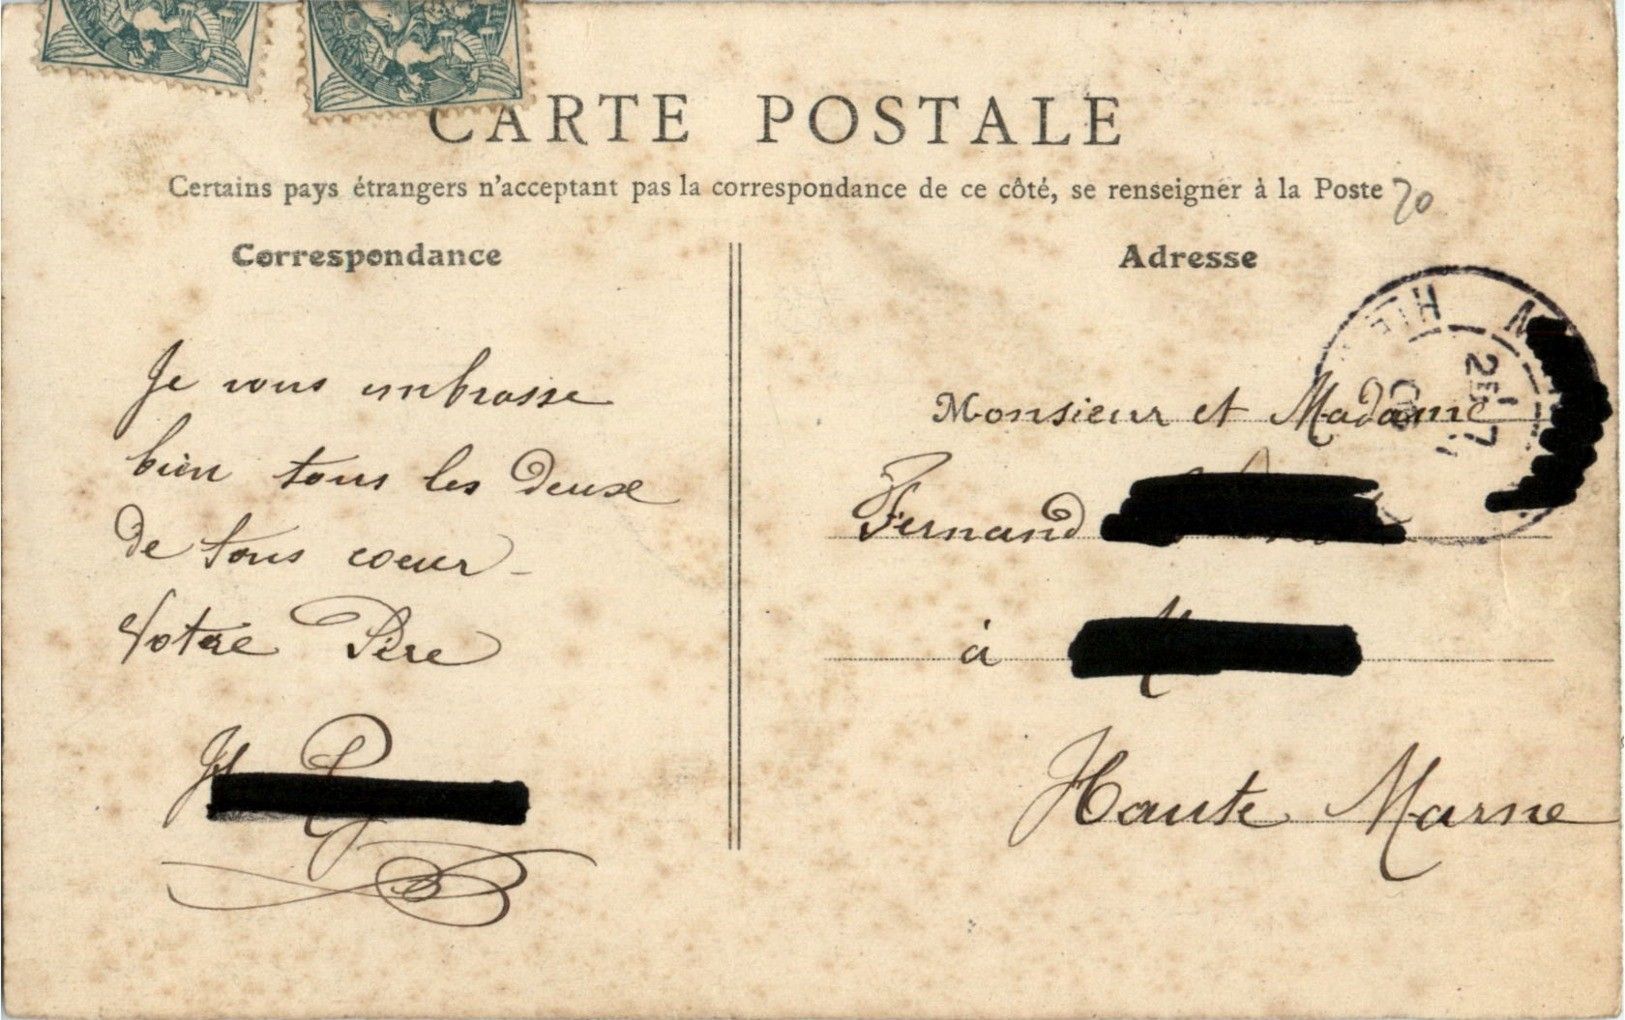 CARTE POSTALE
Certains pays étrangers n'acceptant pas la correspondance de ce côté, se renseigner à la Poste
70
Correspondance
Je vous embrasse
bien tous les deux
de tous coeur
Votre Père
Adresse
Monsieur et Madame
Fernand
à
Haute Marne